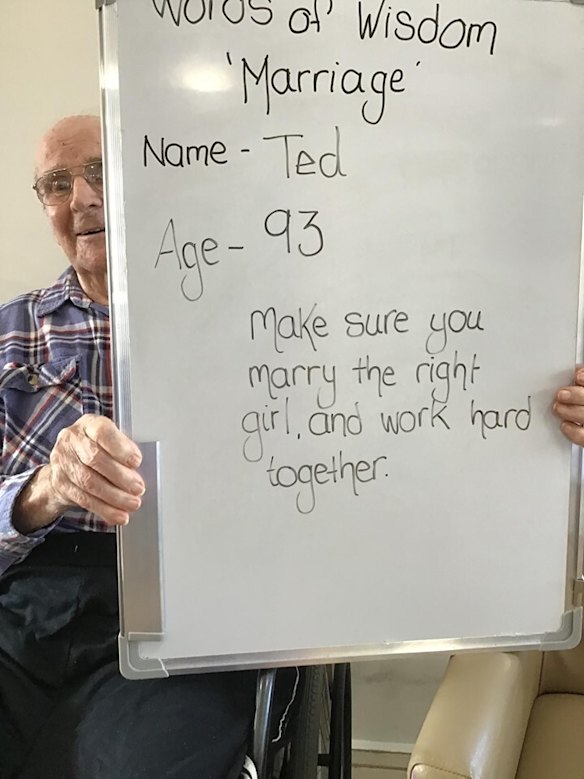 Words of Wisdom
'Marriage'
Name - Ted
Age - 93
Make sure you
marry the right
girl, and work hard
together.